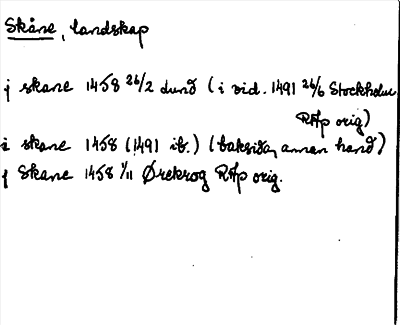 Skåne, landskap
j skane 1458 26/2 Lund (i vid. 1491 26/6 Stockholm
RAp orig)
i skane 1458 (1491 ib.) (baksida, annan hand)
j Skane 1458 1/11 Ørekrog RAp orig.